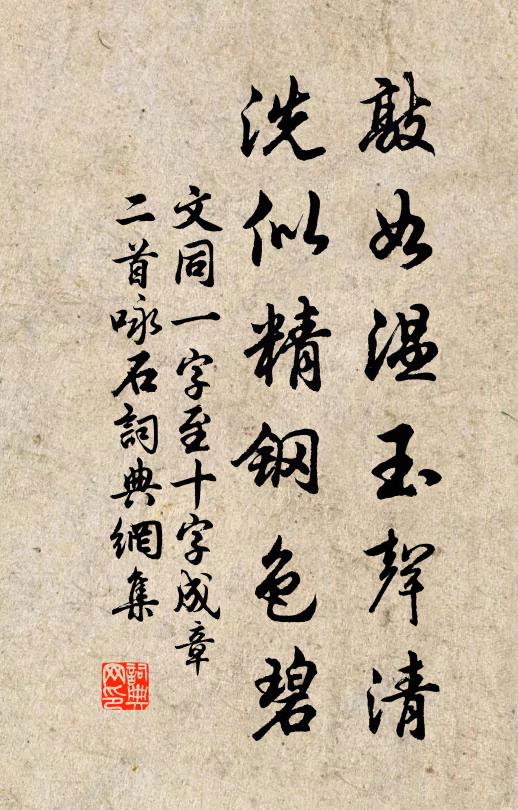 敲如温玉聲清
洗似精鋼色碧
文同一字至十字成章
二首咏石詞典網集
詞典
网印